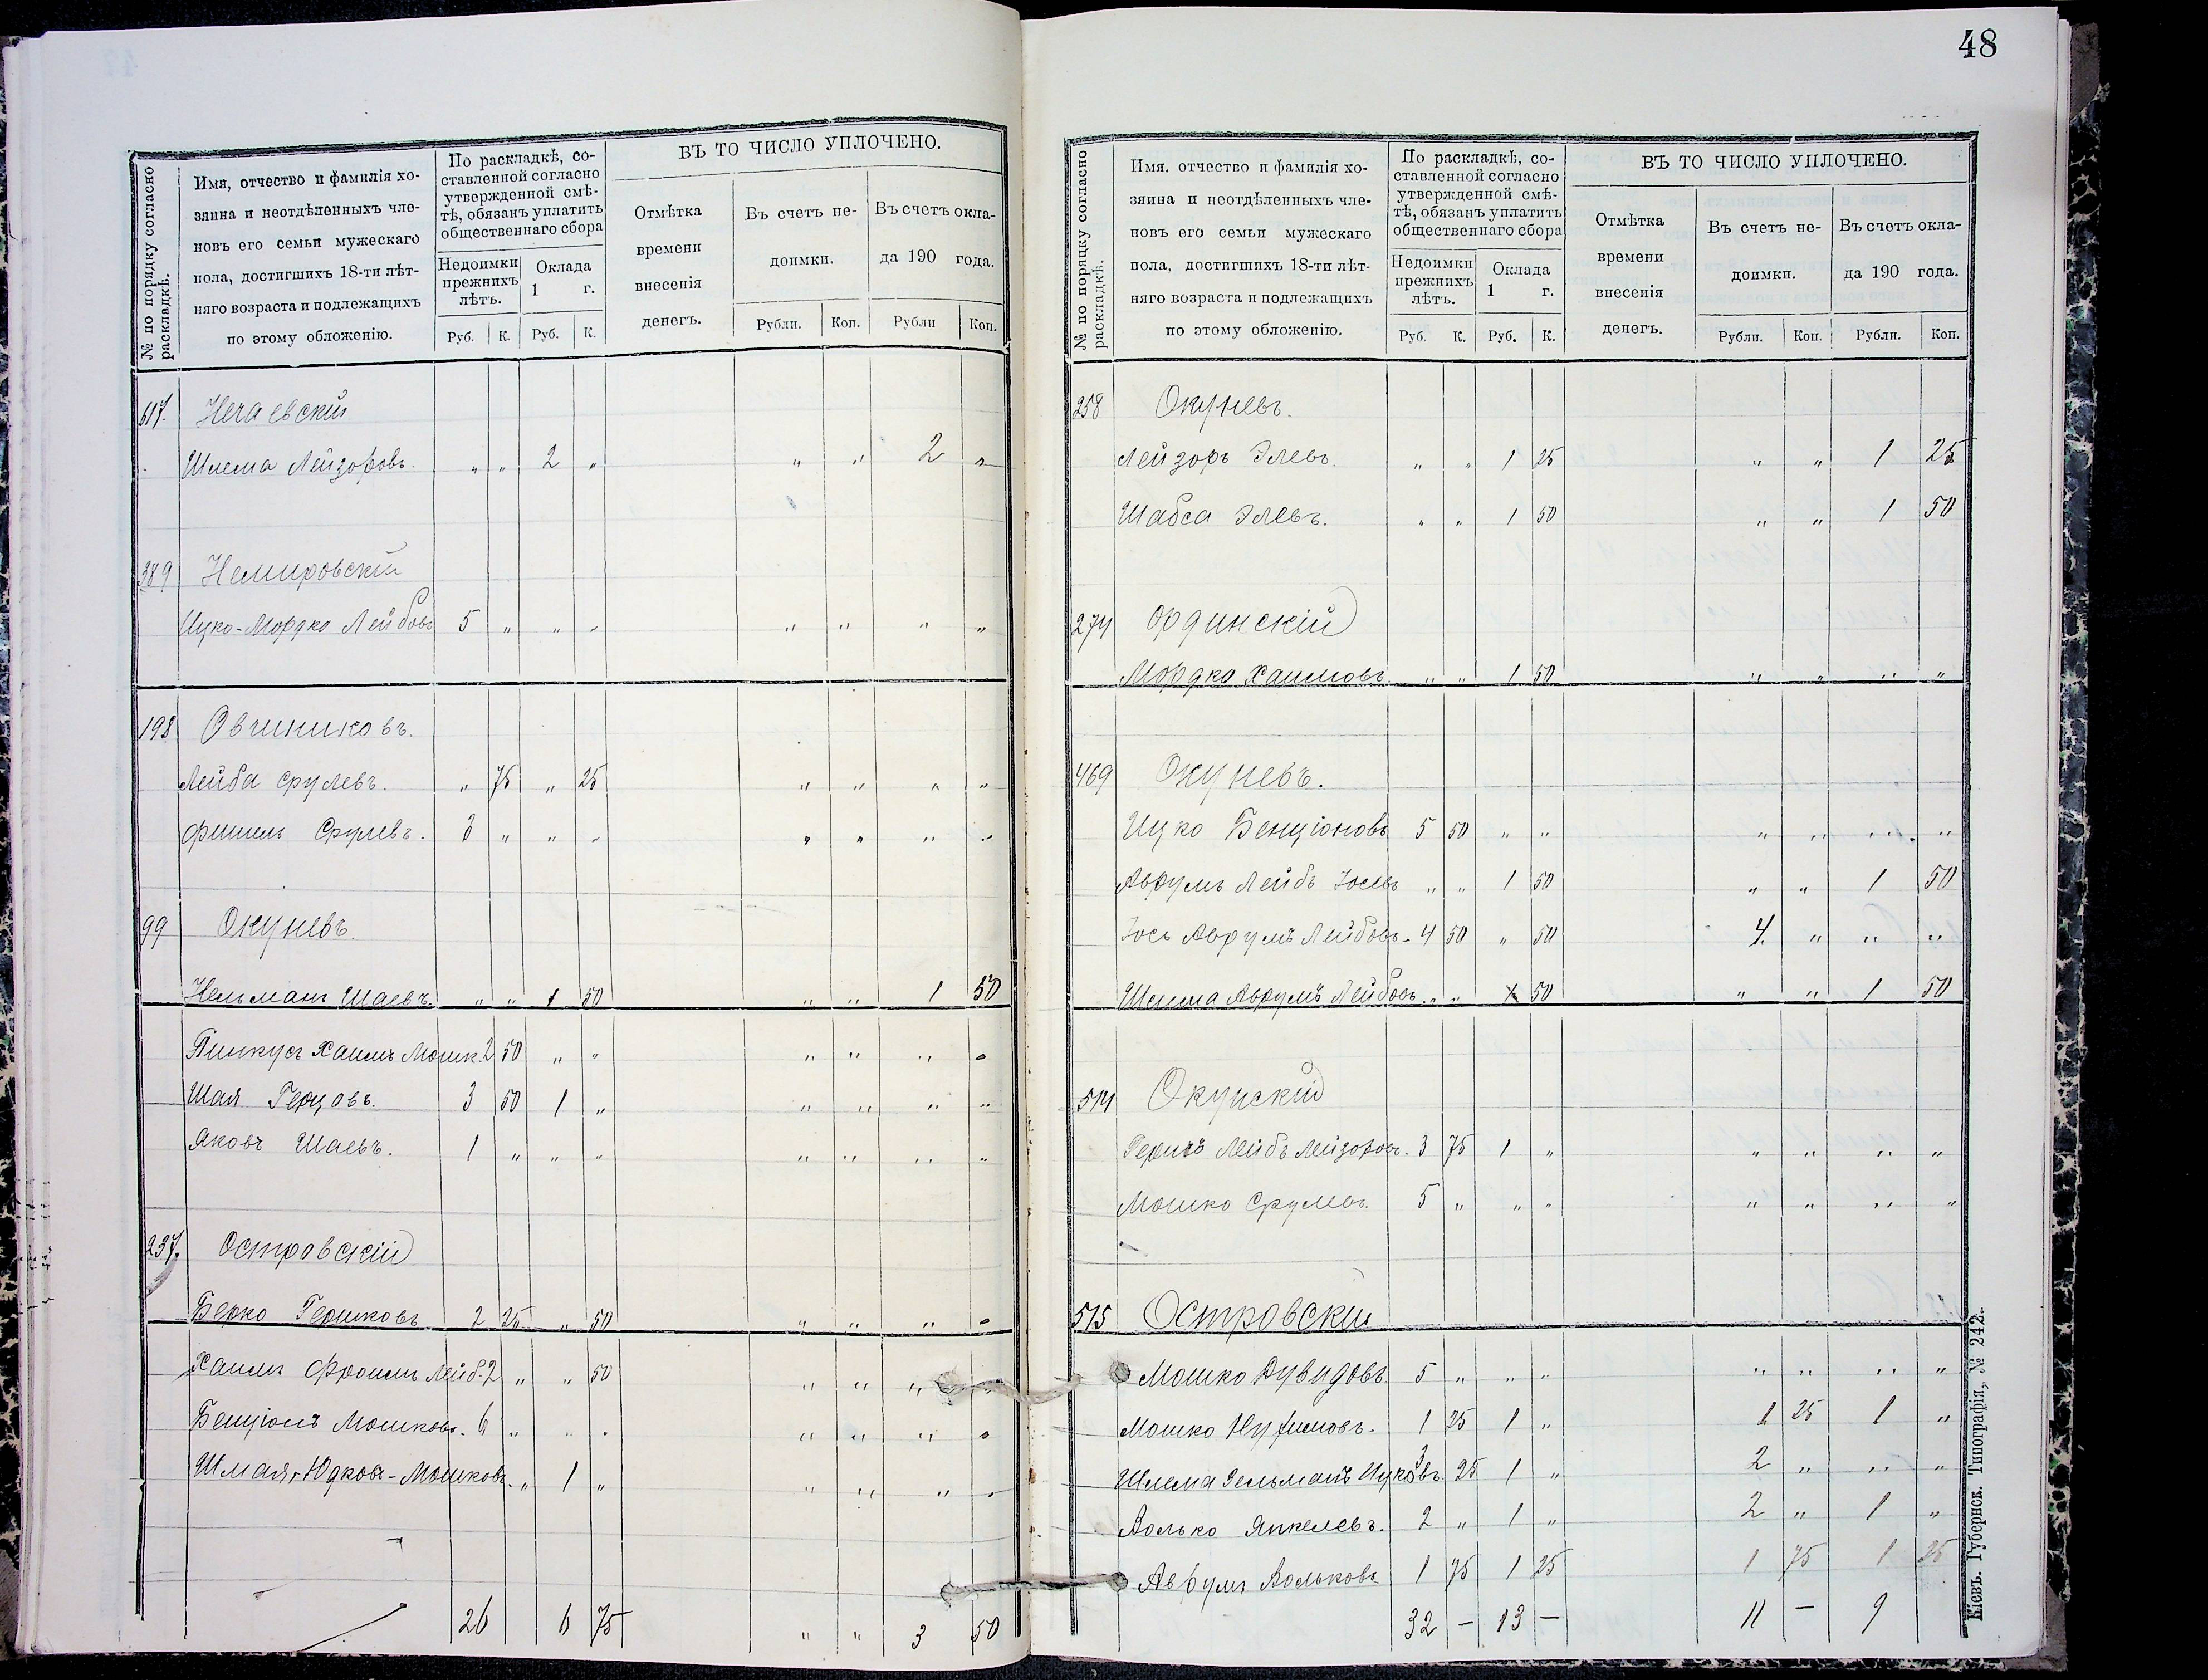 48
№ по порядку согласно раскладкѣ.
Имя, отчество и фамилія хо-
зяина и неотдѣленныхъ чле-
новъ его семьи мужескаго
пола, достигшихъ 18-ти лѣт-
няго возраста и подлежащихъ
по этому обложенію.
По раскладкѣ, со-
ставленной согласно
утвержденной смѣ-
тѣ, обязанъ уплатить
общественнаго сбора
Недоимки прежнихъ лѣтъ.
Оклада 1 г.
Руб. К. Руб. К.
ВЪ ТО ЧИСЛО УПЛОЧЕНО.
Отмѣтка времени внесенія денегъ.
Въ счетъ не- доимки.
Въ счетъ окла- да 190 года.
Рубли. Коп. Рубли Коп.
617. Нечаевскій
Шлема Лейзоровъ. " " 2 " " " 2 "
389 Немировскій
Ицко-Мордко Лейбовъ 5 " " " " " " "
198 Овчиниковъ.
Лейба Срулевъ. " 75 " 25 " " " "
Фишель Срулевъ. 3 " " " " " " "
99 Окуневъ.
Кельманъ Шаевъ. " " 1 50 " " 1 50
Пинкусъ Хаимъ Мошк. 2 50 " " " " " "
Шая Герцовъ. 3 50 1 " " " " "
Яковъ Шаевъ. 1 " " " " " " "
237. Островскій
Берко Гершковъ 2 25 " 50 " " " "
Хаимъ Фроимъ Лейб. 2 " " 50 " " " "
Бенціонъ Мошковъ. 6 " " " " " " "
Шмая-Юдковъ-Мошковъ. " 1 " " " " "
26 6 75 " " 3 50
№ по поряцку согласно раскладкѣ.
Имя. отчество и фамилія хо-
зяина и неотдѣленныхъ чле-
новъ его семьи мужескаго
пола, достигшихъ 18-ти лѣт-
няго возраста и подлежащихъ
по этому обложенію.
По раскладкѣ, со-
ставленной согласно
утвержденной смѣ-
тѣ, обязанъ уплатить
общественнаго сбора
Недоимки прежнихъ лѣтъ.
Оклада 1 г.
Руб. К. Руб. К.
ВЪ ТО ЧИСЛО УПЛОЧЕНО.
Отмѣтка времени внесенія денегъ.
Въ счетъ не- доимки.
Въ счетъ окла- да 190 года.
Рубли. Коп. Рубли. Коп.
258 Окуневъ.
Лейзоръ Элевъ. " " 1 25 " " 1 25
Шабса Элевъ. " " 1 50 " " 1 50
274 Ординскій
Мордко Хаимовъ. " " 1 50 " " " "
469 Окуневъ.
Ицко Бенціоновъ 5 50 " " " " " "
Аврумъ Лейбъ Іосевъ " " 1 50 " " 1 50
Іось Аврумъ Лейбовъ. 4 50 " 50 4. " " "
Шлема Аврумъ Лейбовъ. " " 1 50 " " 1 50
514 Окунскій
Гершъ Лейбъ Лейзоров. 3 75 1 " " " " "
Мошко Срулевъ. 5 " " " " " " "
515 Островскій
Мошко Дувидовъ. 5 " " " " " " "
Мошко Нухимовъ. 1 25 1 " 1 25 1 "
Шлема Зельманъ Ицковъ. 3 25 1 " 2 " " "
Волько Янкелевъ. 2 " 1 " 2 " 1 "
Аврумъ Вольковъ 1 75 1 25 1 75 1 25
32 — 13 — 11 — 9
Кіевъ. Губернск. Типографія, № 242.